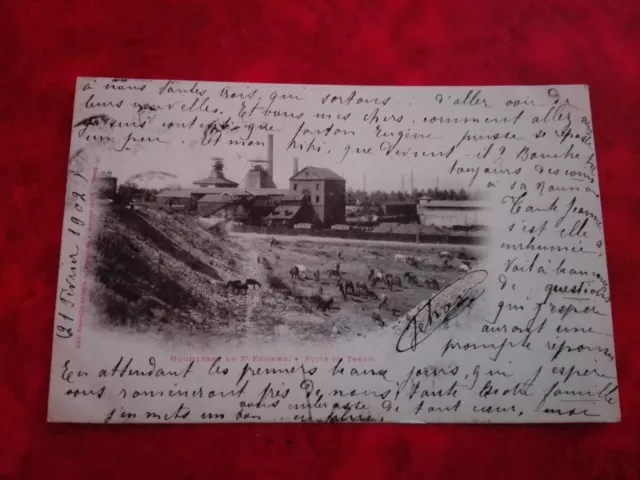 à nous toutes trois, qui sortons... d'aller voir de
leurs nouvelles. Et vous mes chers, comment allez
suis contente que tonton Eugène puisse se repose
un peu. Et mon Kiki, que devient-il? Bouche
toujours des
à sa Nounou
Tante Jeanne
est
enrhumée
Voilà beaucoup
de questions
qui j'espère
auront une
prompte réponse
21 Février 1902
Jehan
HOUILLÈRES DE St ETIENNE. - PUITS DU TREUIL
En attendant les premiers beaux jours, qui j'espère
vous ramèneront près de nous, toute notre famille
vous embrasse de tout cœur, moi
j'en mets un bon